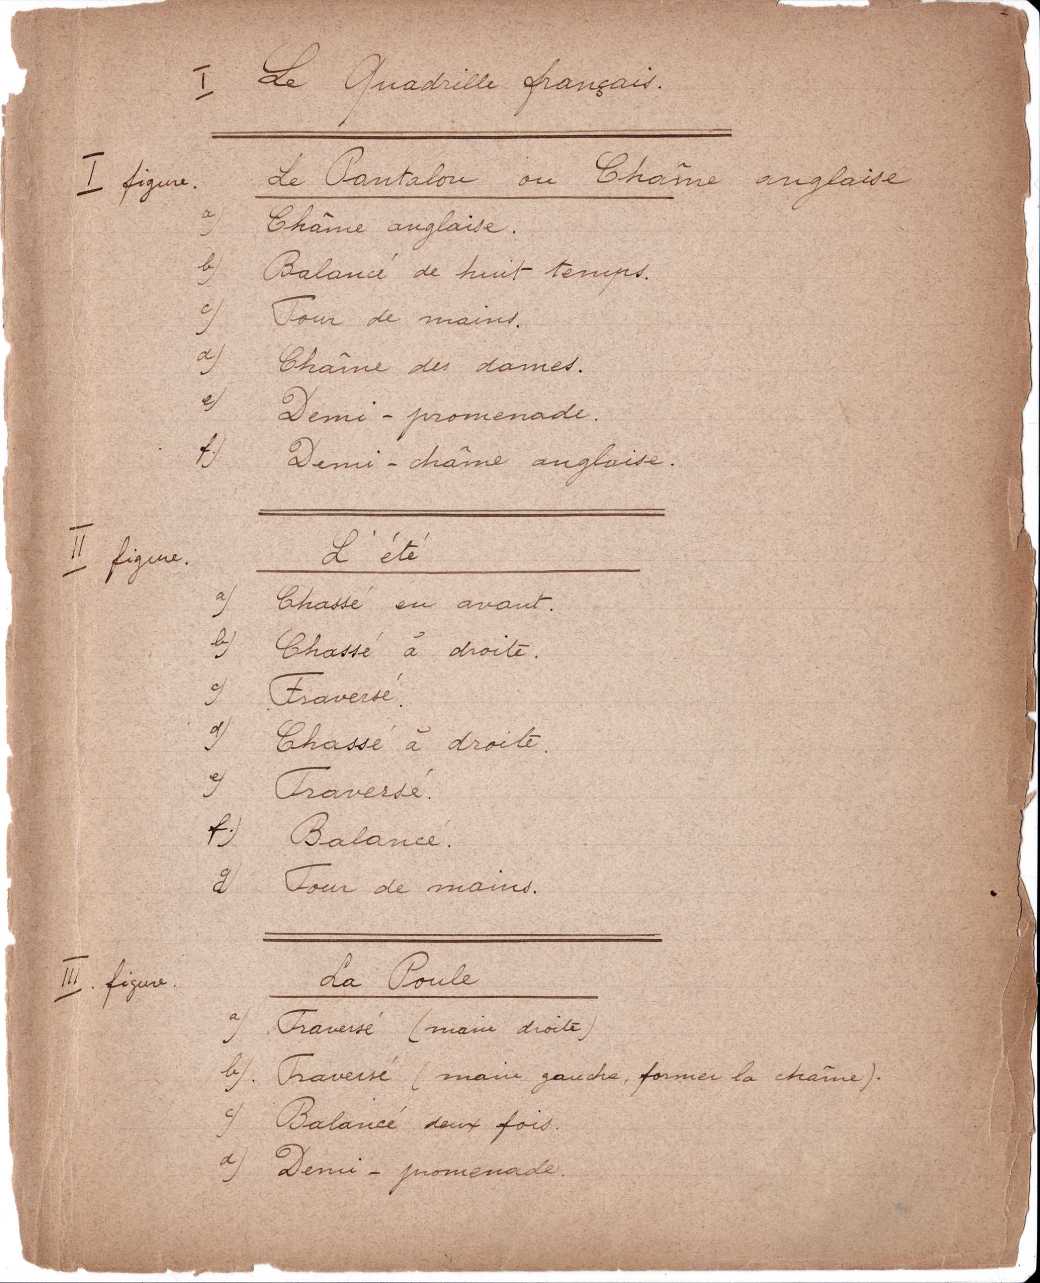 I Le Quadrille français.
I figure. Le Pantalon ou Chaîne anglaise
a) Chaîne anglaise.
b) Balancé de huit temps.
c) Tour de mains.
d) Chaîne des dames.
e) Demi - promenade.
f.) Demi - chaîne anglaise.
II figure. L'été
a) Chassé en avant.
b) Chassé à droite.
c) Traversé.
d) Chassé à droite.
e) Traversé.
f.) Balancé.
g) Tour de mains.
III. figure. La Poule
a) Traversé (main droite)
b). Traversé (main gauche, former la chaîne).
c) Balancé deux fois.
d) Demi - promenade.